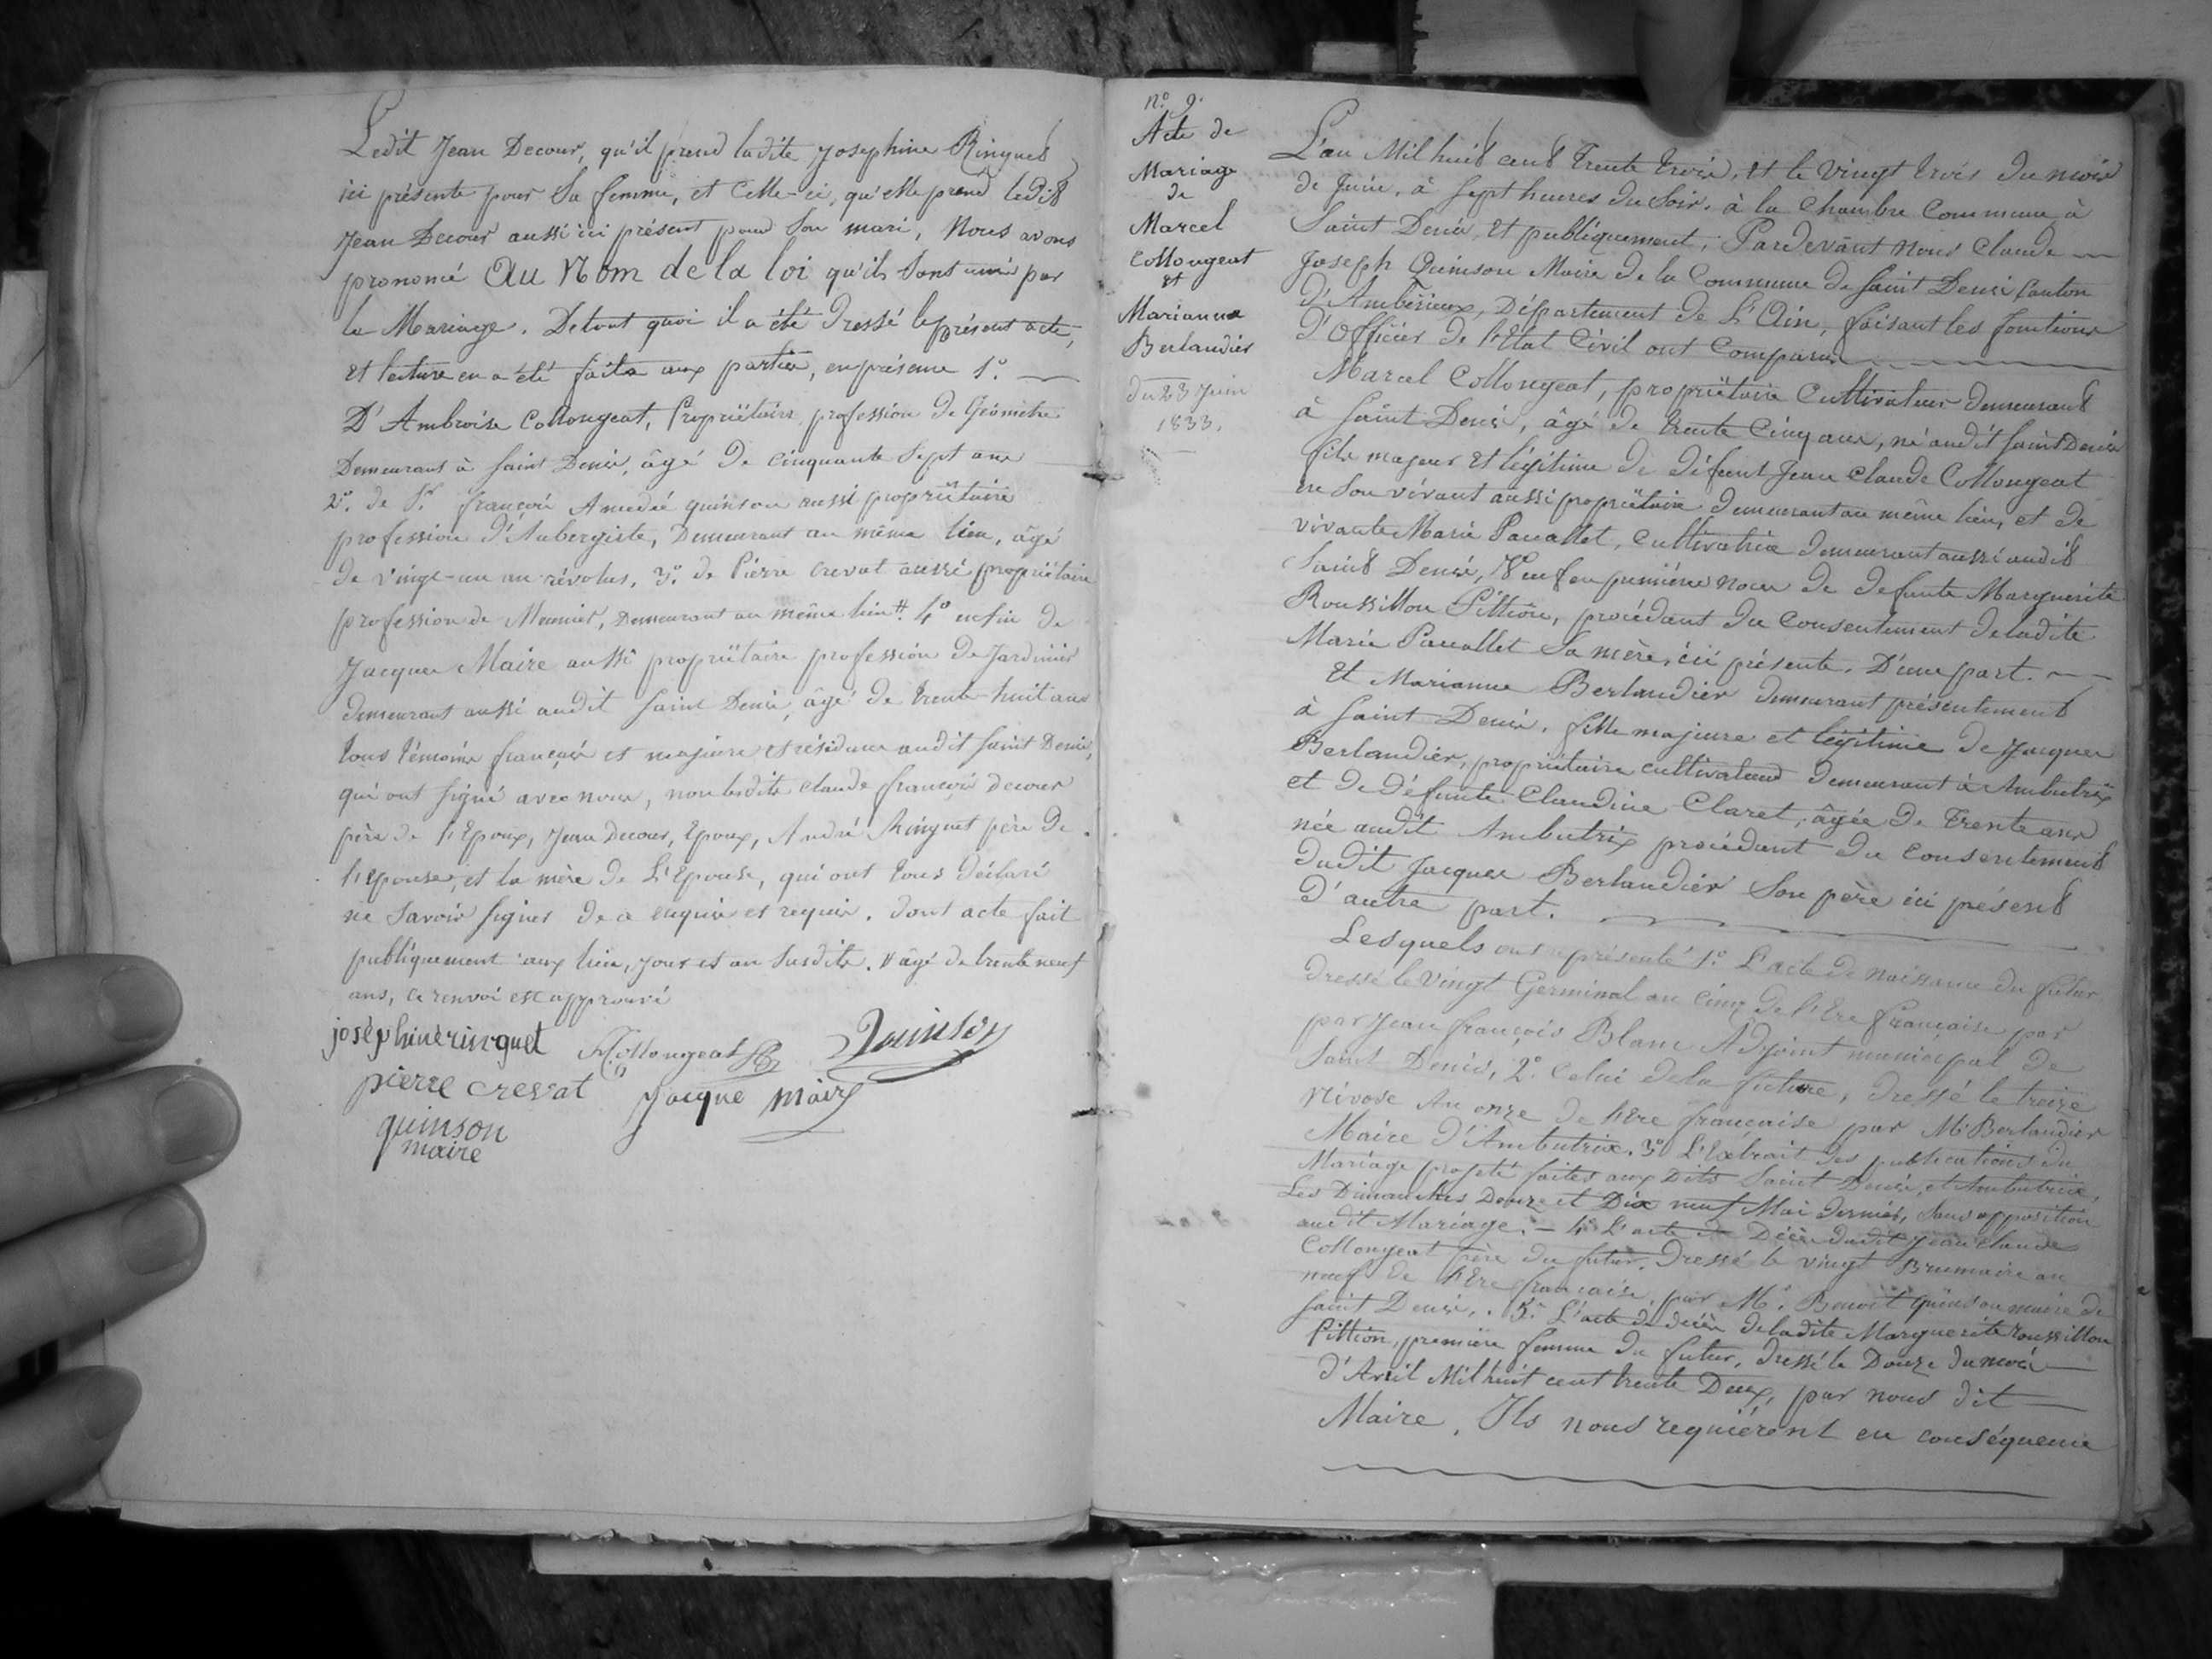 Ledit Jean Decour, qu'il prend ladite Josephine Ringuet
ici présente pour Sa femme, et Celle-ci, qu'elle prend ledit
Jean Decour aussi ici présent pour Son mari, Nous avons
prononcé Au Nom de la loi qu'ils sont unis par
le Mariage. De tout quoi il a été dressé le présent acte,
et lecture en a été faite aux parties, en présence 1°. —
D'Ambroise Collongeat, Propriétaire profession de Géomètre
Demeurant à Saint Denis, âgé de cinquante Sept ans
2°. de Sr. françois Amedée quinson aussi propriétaire
profession d'Aubergiste, Demeurant au même lieu, âgé
de vingt-un an révolus, 3°. de Pierre Crevat aussi propriétaire
profession de Meunier, Demeurant au même lieu # 4° enfin de
Jacques Maire aussi propriétaire profession de Jardinier
demeurant aussi audit Saint Denis, âgé de trente-huit ans
tous témoins français et majeurs et résidans audit Saint Denis,
qui ont signé avec nous, non lesdits Claude françois decour
père de l'Epoux, Jean Decour, Epoux, André Ringuet père de
l'Epouse, et la mère de L'Epouse, qui ont tous déclaré
ne Savoir signer de ce enquis et requis. dont acte fait
publiquement aux lieu, jour et an Susdits. # âgé de trente neuf
ans, ce renvoi est approuvé
joséphine ringuet Collongeat Quinson
pierre crevat Jacque Maire
quinson
maire
n°. 9.
Acte de
Mariage
de
Marcel
Collongeat
et
Marianne
Berlandier
du 23 Juin
1833.
L'an Mil huit cent trente trois, et le vingt trois du mois
de Juin, à Sept heures du Soir, à la Chambre Commune à
Saint Denis, et publiquement, Pardevant nous Claude —
Joseph Quinson Maire de la Commune de Saint Denis Canton
d'Ambérieux, Département de L'Ain, faisant les fonctions
d'Officier de l'Etat Civil ont Comparu
Marcel Collongeat, propriétaire Cultivateur demeurant
à Saint Denis, âgé de trente Cinq ans, né audit Saint Denis
fils majeur et légitime de défunt Jean Claude Collongeat
en Son vivant aussi propriétaire demeurant au même lieu, et de
vivante Marie Pauallet, Cultivatrice demeurant aussi audit
Saint Denis, Veuf en premières noces de defunte Marguerite
Roussillon Pittion, procédant du Consentement de ladite
Marie Pauallet Sa mère, ici présente. D'une part. —
Et Marianne Berlandier demeurant présentement
à Saint Denis, fille majeure et légitime de Jacques
Berlandier, propriétaire cultivateur demeurant à Ambutrix
et de défunte Claudine Claret, âgée de Trente ans
née audit Ambutrix procédant du consentement
dudit Jacques Berlandier Son père ici présent
D'autre part.
Lesquels ont représenté 1°. L'acte de naissance du futur
dressé le vingt Germinal an cinq de l'Ere française par
par Jean françois Blanc Adjoint municipal de
Saint Denis, 2°. Celui de la future, dressé le treize
Nivose An onze de l'Ere française par Mr. Berlandier
Maire d'Ambutrix. 3° L'Extrait des publications du
Mariage projeté faites aux Dits Saint Denis, et Ambutrix,
Les Dimanches Douze et Dix neuf Mai dernier, Sans opposition
audit Mariage. — 4°. L'acte de Décès dudit Jean Claude
Collongeat père du futur, Dressé le vingt Brumaire an
neuf de l'Ere française, par Mr. Benoit Quinson maire de
Saint Denis,. 5°. L'acte de décès de ladite Marguerite roussillon
Pittion, première femme du futur, dressé le Douze du mois —
d'Avril Mil huit cent trente Deux, par nous dit —
Maire, Ils nous requièrent en conséquence